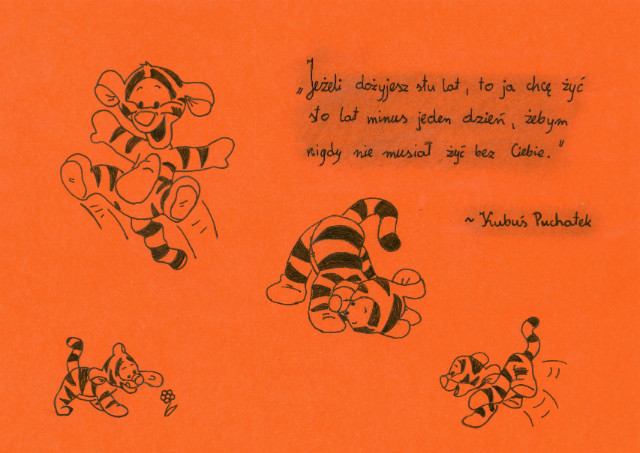 „Jeżeli dożyjesz stu lat, to ja chcę żyć
sto lat minus jeden dzień, żebym
nigdy nie musiał żyć bez Ciebie."
~ Kubuś Puchatek